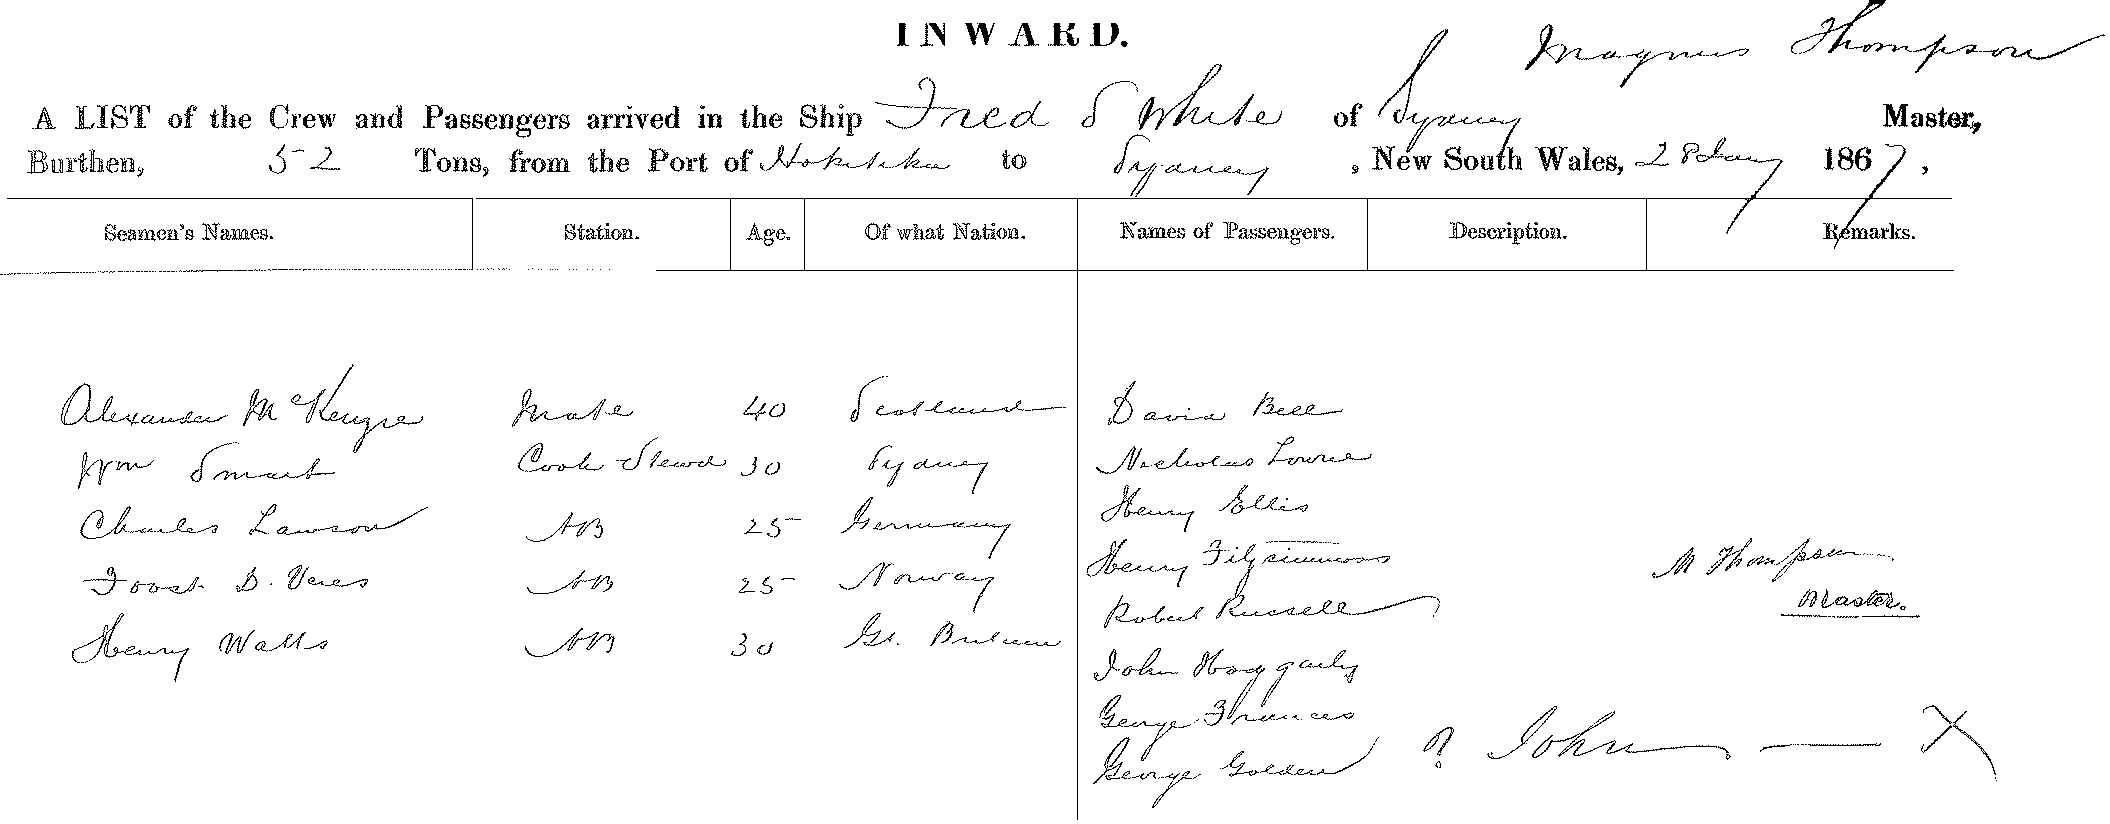 INWARD.
Magnus Thompson
A LIST of the Crew and Passengers arrived in the Ship Fred S White of Sydney Master,
Burthen, 52 Tons, from the Port of Hokitika to Sydney , New South Wales, 28 Jany 1867,
Seamen's Names. Station. Age. Of what Nation. Names of Passengers. Description. Remarks.
Alexander McKenzie Mate 40 Scotland David Bell
Wm Smart Cook Stewd 30 Sydney Nicholas Lowrie
Charles Lawson AB 25 Germany Henry Ellis
Joost D. Veres AB 25 Norway Henry Fitzsimmons M Thompson
Henry Watts AB 30 Gt. Britain Robert Russell Master.
John Haggarty
George Frances
George Golden ? John — X